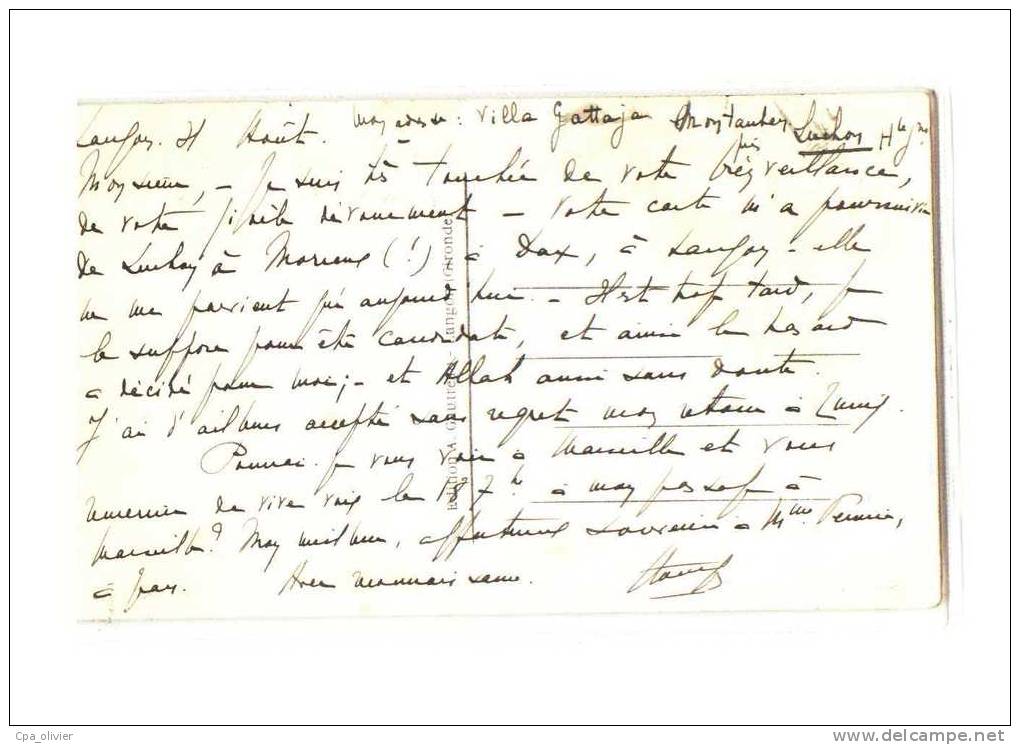 Langon. 21 Août. mon adresse : Villa Gattaja Montauban
près Luchon Hte Gne
Monsieur, — Je suis très touchée de votre bienveillance,
de votre fidèle dévouement — Votre carte m'a poursuivie
de Luchon à (!) à Dax, à Langon — elle
ne me parvient qu'aujourd'hui. — Il est trop tard, je
le suppose pour être candidate, et ainsi le hasard
a décidé pour moi ; — et Allah aussi sans doute.
J'ai d'ailleurs accepté sans regret mon retour à Tunis.
Pourrai-je vous voir à Marseille et vous
remercier de vive voix le 7 à mon passage à
Marseille ? Mon meilleur, affectueux souvenir à Mme
à Avec reconnaissance.
Edition A. Gautreau Langon (Gironde)
Cpa_olivier
www.delcampe.net